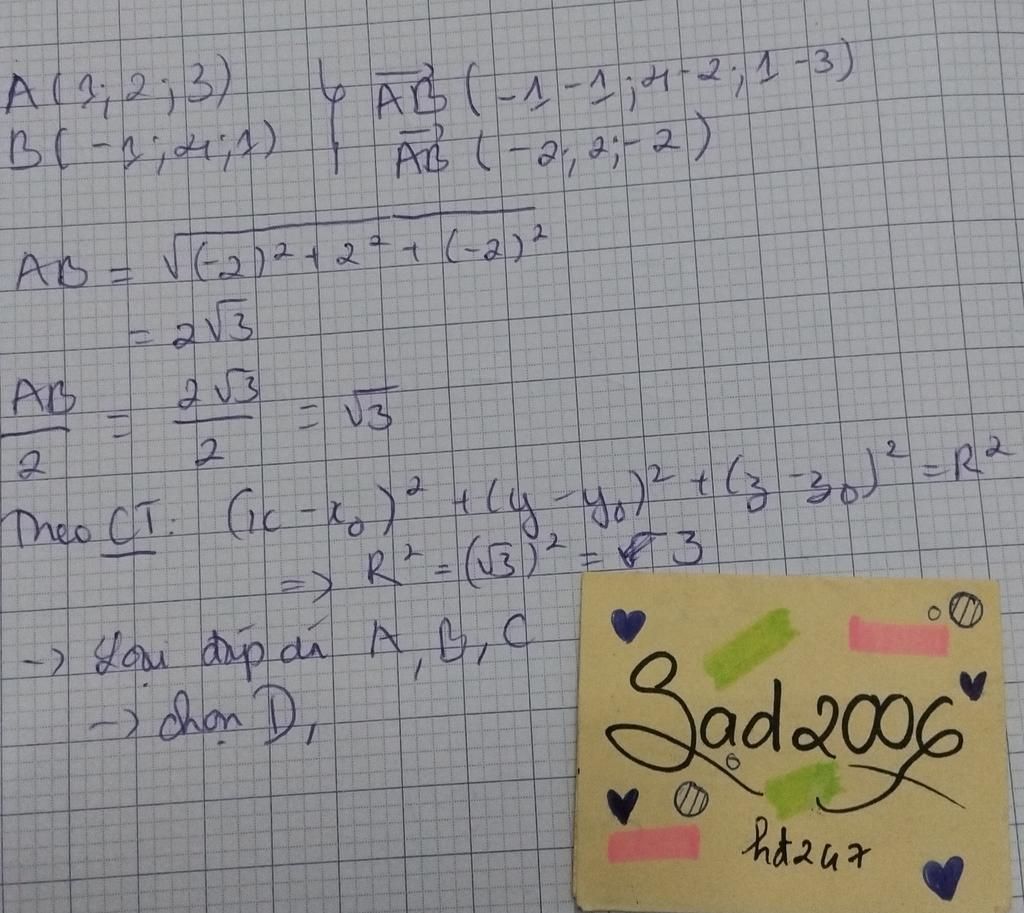 A(1;2;3)
B(-1;4;1)
AB(-1-1;4-2;1-3)
AB(-2;2;-2)
AB = √(-2)² + 2² + (-2)²
= 2√3
AB/2 = 2√3/2 = √3
Theo CT: (x - x₀)² + (y - y₀)² + (z - z₀)² = R²
=> R² = (√3)² = 3
-> Loại đáp án A, B, C
-> chọn D,
Sad2006
hd247